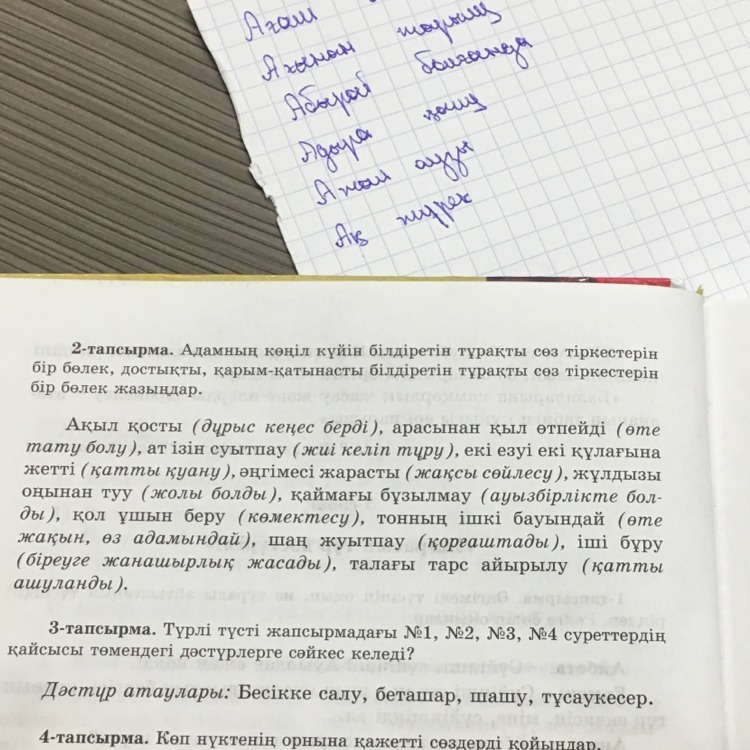 Ағаш
Ағынан жарылш
Абырай болғанда
Адыра қалш
Ажал аузы
Ақ жүрек
2-тапсырма. Адамның көңіл күйін білдіретін тұрақты сөз тіркестерін
бір бөлек, достықты, қарым-қатынасты білдіретін тұрақты сөз тіркестерін
бір бөлек жазыңдар.
Ақыл қосты (дұрыс кеңес берді), арасынан қыл өтпейді (өте
тату болу), ат ізін суытпау (жиі келіп тұру), екі езуі екі құлағына
жетті (қатты қуану), әңгімесі жарасты (жақсы сөйлесу), жұлдызы
оңынан туу (жолы болды), қаймағы бұзылмау (ауызбірлікте бол-
ды), қол ұшын беру (көмектесу), тонның ішкі бауындай (өте
жақын, өз адамындай), шаң жуытпау (қорғаштады), іші бұру
(біреуге жанашырлық жасады), талағы тарс айырылу (қатты
ашуланды).
3-тапсырма. Түрлі түсті жапсырмадағы №1, №2, №3, №4 суреттердің
қайсысы төмендегі дәстүрлерге сәйкес келеді?
Дәстүр атаулары: Бесікке салу, беташар, шашу, тұсаукесер.
4-тапсырма. Көп нүктенің орнына қажетті сөздерді қойыңдар.